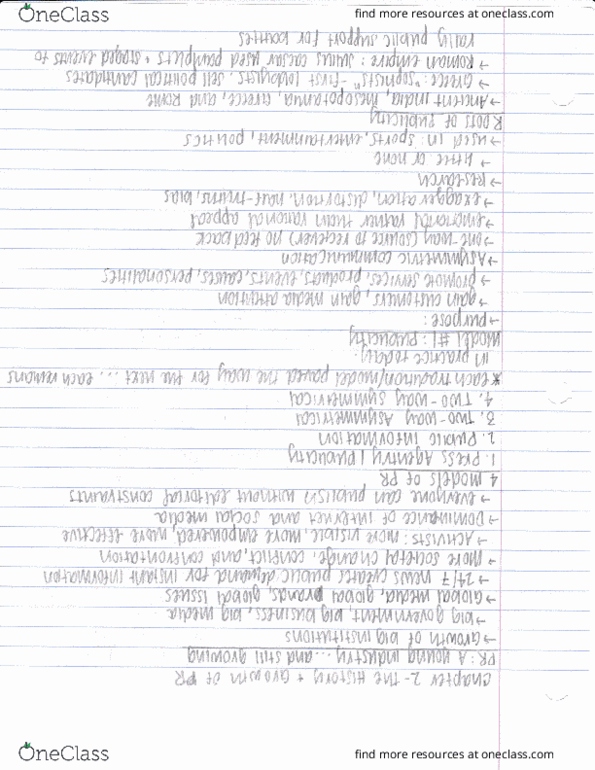 OneClass
find more resources at oneclass.com
chapter 2 - the History + Growth of PR
PR: A young industry ... and still growing
→ Growth of big institutions
→ big government, big business, big media
→ Global media, global brands, global issues
→ 24/7 news creates public demand for instant information
→ more societal change, conflict, and confrontation
→ Activists: more visible, more empowered, more effective
→ Dominance of internet and social media
→ everyone can publish without editorial constraints
4 models of PR
1. Press Agentry / Publicity
2. Public information
3. Two-way Asymmetrical
4. Two-way symmetrical
*each tradition/model paved the way for the next ... each remains
in practice today.
Model #1: Publicity
→ purpose:
→ gain customers, gain media attention
→ promote services, products, events, causes, personalities
→ Asymmetric communication
→ one-way (source to receiver) no feedback
→ emotional rather than rational appeal
→ exaggeration, distortion, half-truths, bias
→ Research
→ little or none
→ used in: sports, entertainment, politics
Roots of Publicity
→ Ancient india, mesopotamia, Greece, and Rome
→ Greece: "sophists" - first lobbyists. sell political candidates
→ Roman empire: Julius Caesar used pamphlets + staged events to
rally public support for battles
OneClass
find more resources at oneclass.com